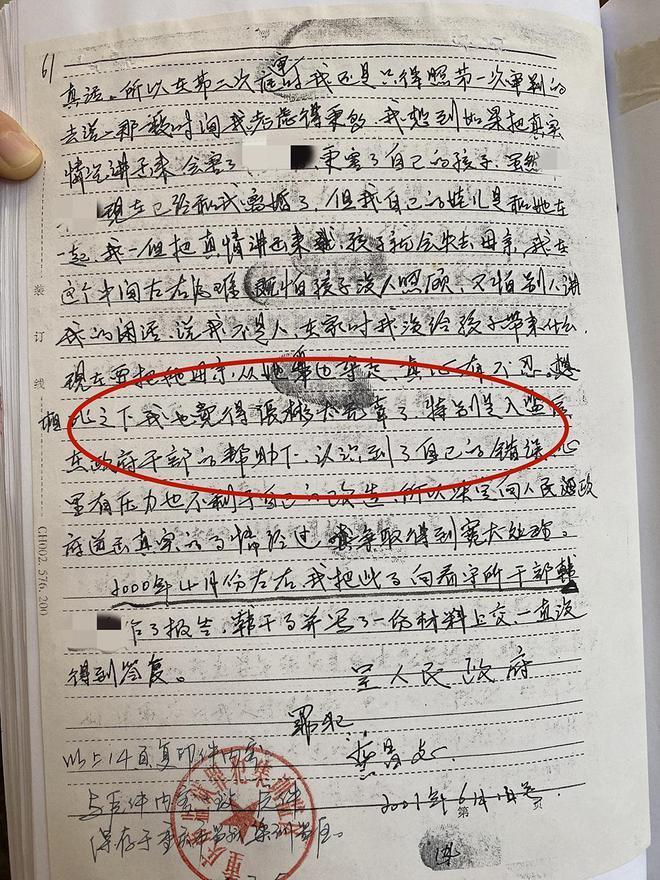 61
真话。所以在第二次 时我还是只得照第一次审判的
去说。那一段时间我考虑得 多 我想到如果把真实
情况讲出来 会害了 更害了自己的孩子 虽然
现在已经和我离婚了,但我自己的娃儿是和她在
一起,我一但把真情讲出来 孩子就会失去母亲,我在
这个中间左右为难 既怕孩子没人照顾,又怕别人讲
我的闲话,说我不是人 在家时我没给孩子带来什么,
现在要把她母亲从她 边夺走,真 有不忍。想
相比之下我也觉得张 太 了,特别是入监后
在政府干部的帮助下,认识到了自己的错误 心
里有压力也不利于自己的改造,所以决定向人民 政
府道出真实的事情经过 争取得到宽大处理。
2000年4月份左右,我把此事向看守所干部韩
作了报告,韩干事并写了一份材料上交,一直没
得到答复。
呈人民政府
罪犯
以上14页复印件内容
与原件内容一致 原件
保存于重庆市 集训监区。
2001年6月
第 页
14
装
订
线
CH002.576.200